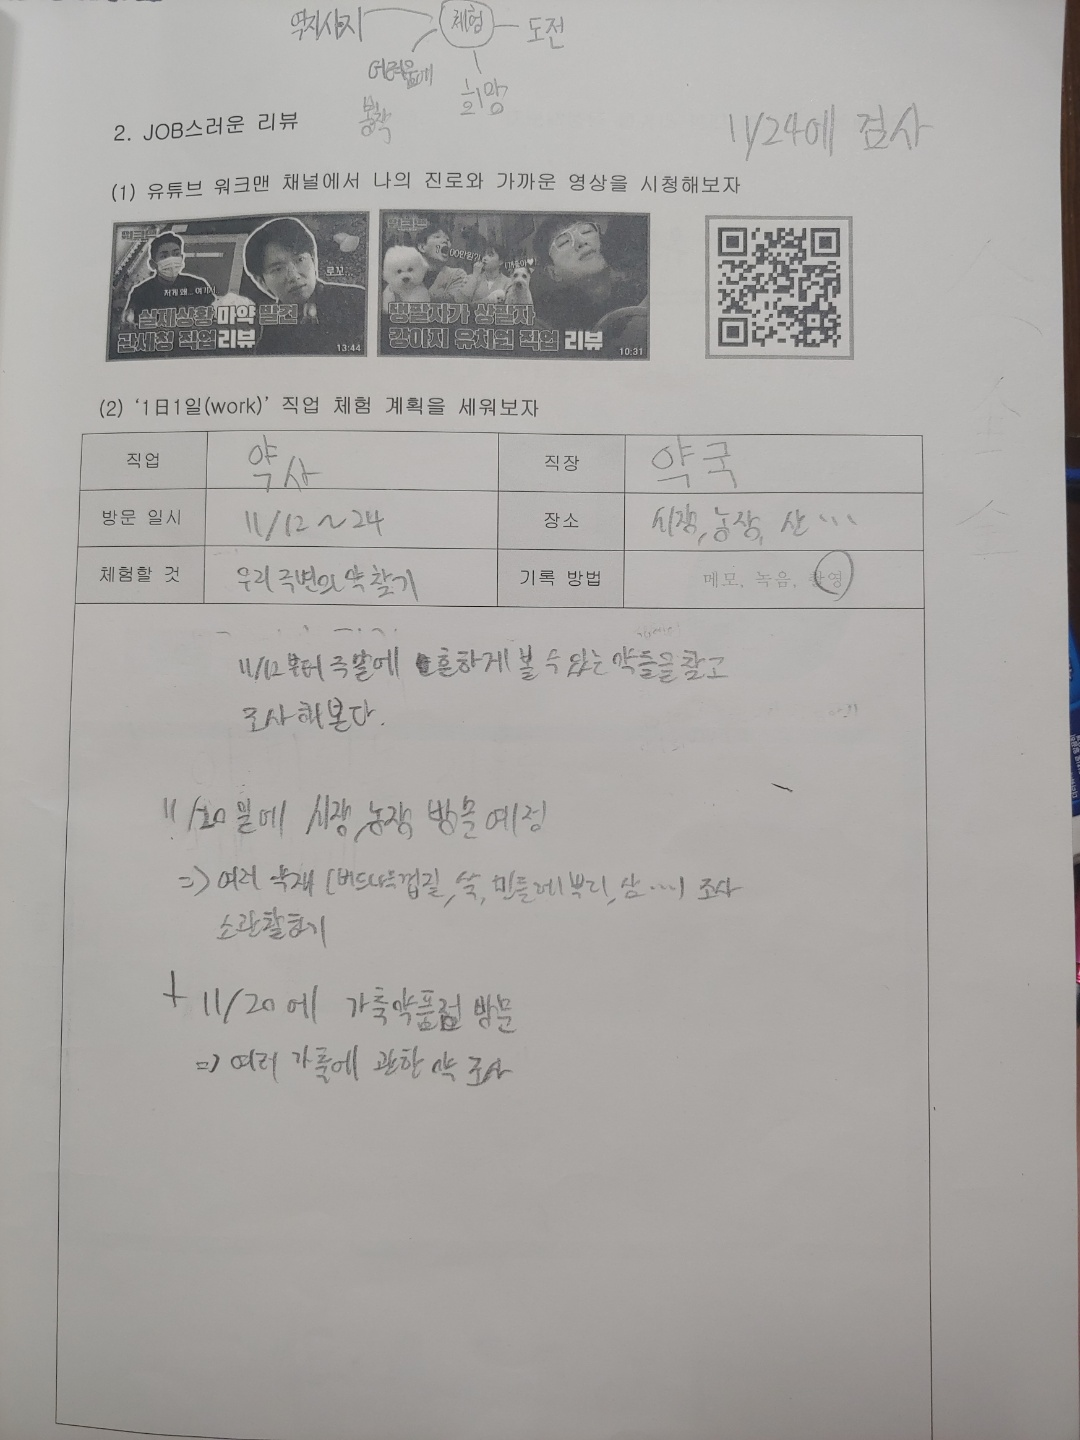 역지사지 체험 도전
어려웁게
희망
봉착
2. JOB스러운 리뷰
11/24에 검사
(1) 유튜브 워크맨 채널에서 나의 진로와 가까운 영상을 시청해보자
워크맨
저게 왜... 여기서
로꼬...
실제상황 마약 발견
관세청 직업 리뷰
13:44
댕팔자가 상팔자
강아지 유치원 직업 리뷰
10:31
(2) ‘1日1일(work)’ 직업 체험 계획을 세워보자
직업 약사 직장 약국
방문 일시 11/12 ~ 24 장소 시장, 농장, 산 ...
체험할 것 우리 주변의 약 찾기 기록 방법 메모, 녹음, 촬영
11/12부터 주말에 흔하게 볼 수 있는 약들을 찾고
조사해본다.
11/20일에 시장, 농장 방문예정
=> 여러 약재 (버드나무껍질, 쑥, 민들레뿌리, 삼 ...) 조사
+ 11/20에 가축약품점 방문
=> 여러 가축에 관한 약 조사